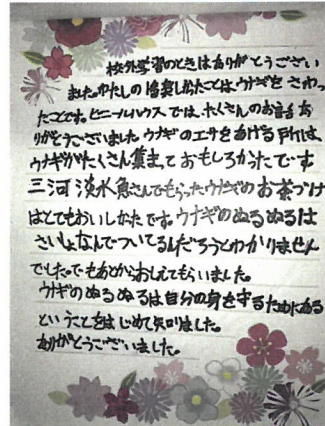 校外学習のときはありがとうござい
ました。わたしの印象しかたことは、ウナギをさわっ
たことです。ビニールハウスでは、たくさんのお話あ
りがとうございました。ウナギのエサをあげる時は、
ウナギがたくさん集まっておもしろかたです
三河淡水魚さんでもらったウナギのお茶づけ
はとてもおいしかたです。ウナギのぬるぬるは
さいしょなんでついてるんだろうとわかりません
でした。でもあとからおしえてもらいました。
ウナギのぬるぬるは自分の身を守るためにある
ということをはじめて知りました。
ありがとうございました。